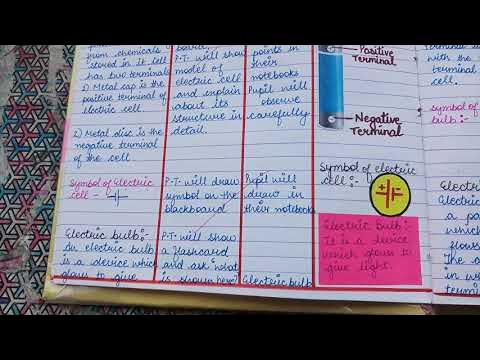 from chemicals
stored in it. Cell
has two terminals
1) Metal cap is the
positive terminal of
electric cell
2) Metal disc is the
negative terminal
of the cell
Symbol of Electric
cell :-
Electric bulb :-
An electric bulb
is a device which
glows to give
board.
P.T. will show
model of
electric cell
and explain
about its
structure in
detail.
P.T. will draw
symbol on the
blackboard
P.T. will show
a flashcard
and ask what
is shown here?
points in
their
notebooks
Pupil will
observe
carefully
Pupil will
draw in
their notebooks
Electric bulb
Positive
Terminal
Negative
Terminal
Symbol of electric
cell :-
+ -
Electric bulb :-
It is a device
which glows to
give light.
with the
terminal
cell.
symbol of
bulb :-
Electric
a pa
which
flows
The
in w
termin